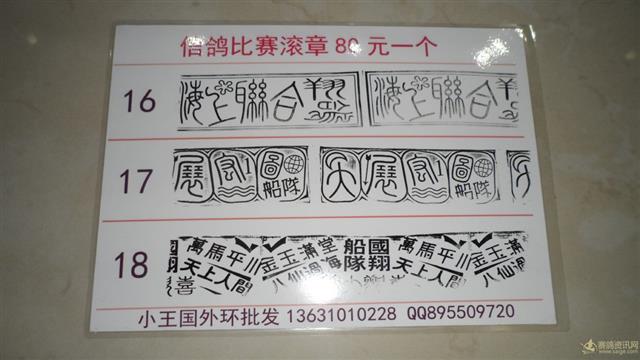 信鸽比赛滚章80元一个
16
海上聯合翔
海上聯合翔
17
展宏圖
船隊
大展宏圖
船隊
大
18
萬馬平川
天上人間
金玉滿堂
八仙過海
國翔
船隊
萬馬平川
天上人間
金玉滿
八仙過
喜
小王国外环批发 13631010228 QQ895509720
赛鸽资讯网
www.saige.com